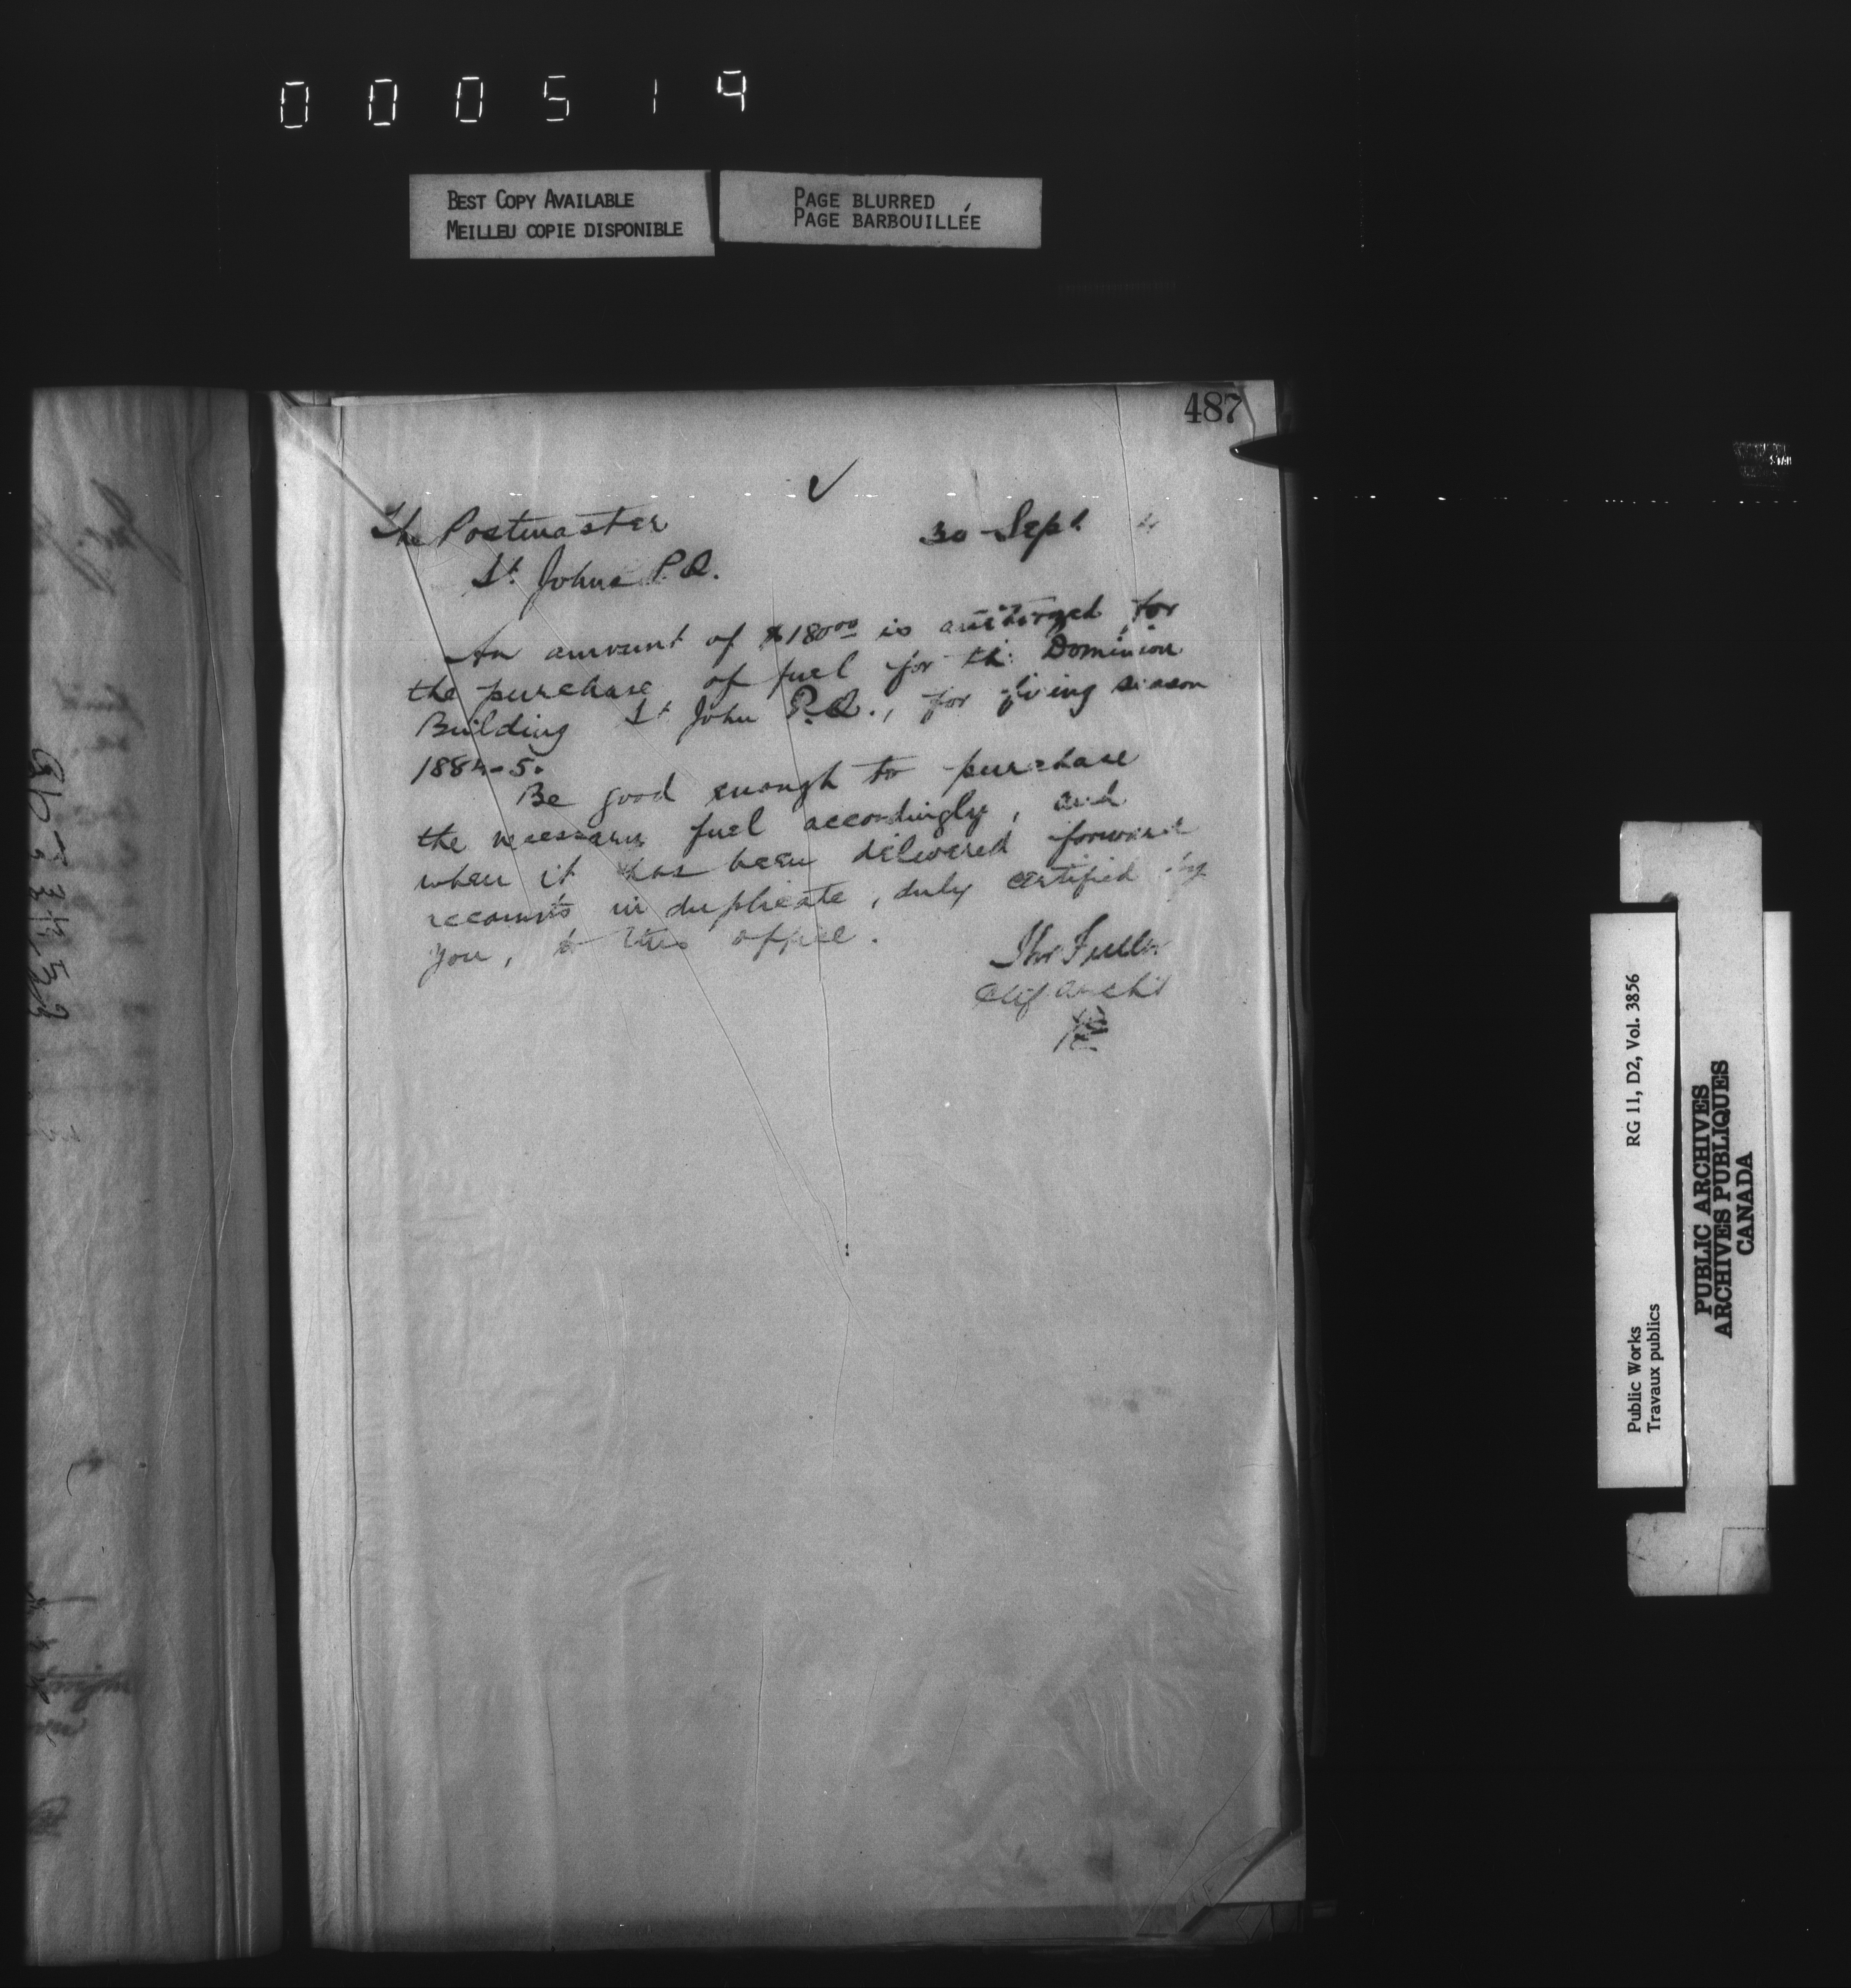 000519
BEST COPY AVAILABLE
MEILLEU COPIE DISPONIBLE
PAGE BLURRED
PAGE BARBOUILLÉE
487
The Postmaster
30 Sept 4
St Johns P.Q.
An amount of $180⁰⁰ is authorized for
the purchase of fuel for the Dominion
Building St John P.Q., for firing season
1884-5.
Be good enough to purchase
the necessary fuel accordingly, and
when it has been delivered forward
accounts in duplicate, duly certified by
you, to this office.
Thos Fuller
Chf Archt
RG 11, D2, Vol. 3856
Public Works
Travaux publics
PUBLIC ARCHIVES
ARCHIVES PUBLIQUES
CANADA